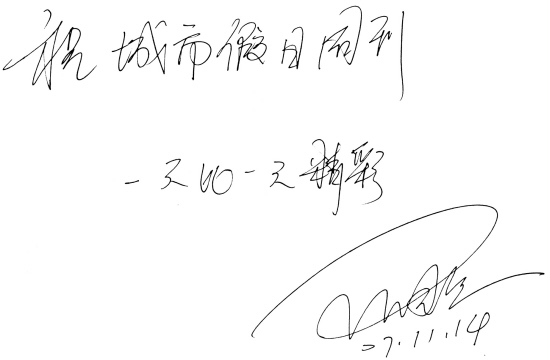 祝城市假日周刊
一天比一天精彩
07.11.14